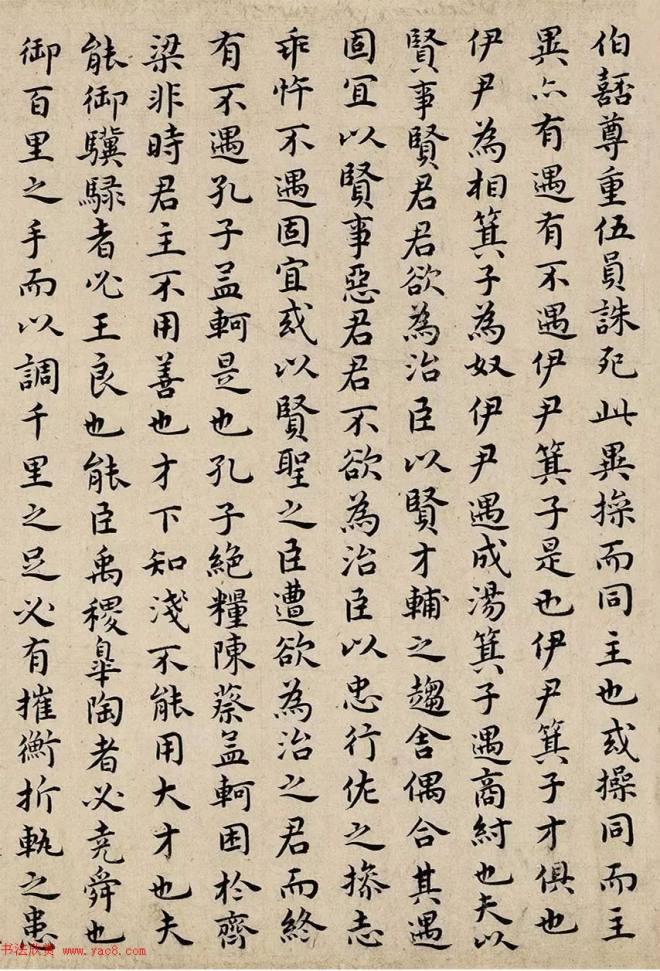 伯嚭尊重伍員誅死此異操而同主也或操同而主
異亦有遇有不遇伊尹箕子是也伊尹箕子才俱也
伊尹為相箕子為奴伊尹遇成湯箕子遇商紂也夫以
賢事賢君君欲為治臣以賢才輔之趨舍偶合其遇
固宜以賢事惡君君不欲為治臣以忠行佐之操志
乖忤不遇固宜或以賢聖之臣遭欲為治之君而終
有不遇孔子孟軻是也孔子絕糧陳蔡孟軻困於齊
梁非時君主不用善也才下知淺不能用大才也夫
能御驥騄者必王良也能臣禹稷皐陶者必堯舜也
御百里之手而以調千里之足必有摧衡折軌之患
书法欣赏 www.yac8.com